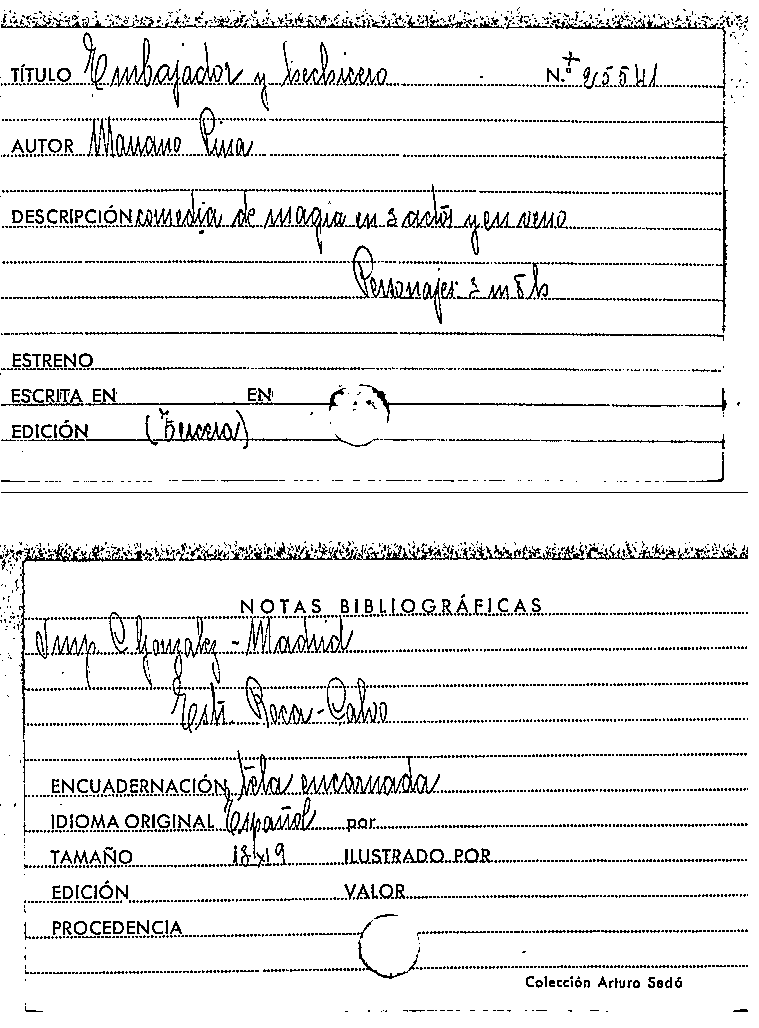 TÍTULO Embajador y hechicero N.º 25541
AUTOR Mariano Pina
DESCRIPCIÓN comedia de magia en 3 actos y en verso
Personajes 3 m 8 h
ESTRENO
ESCRITA EN EN
EDICIÓN (Tercera)
NOTAS BIBLIOGRÁFICAS
Imp. C. Gonzalez - Madrid
Roca - Calvo
ENCUADERNACIÓN tela encarnada
IDIOMA ORIGINAL Español por
TAMAÑO 13x19 ILUSTRADO POR
EDICIÓN VALOR
PROCEDENCIA
Colección Arturo Sedó